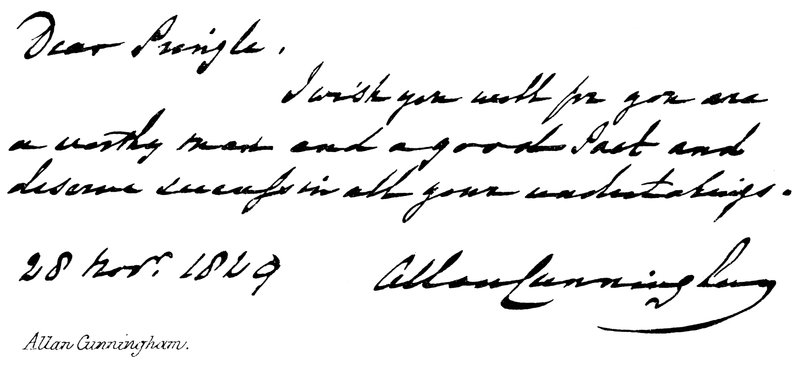 Dear Pringle.
I wish you well for you are
a worthy man and a good Poet and
deserve success in all your undertakings.
28 Novr. 1829
Allan Cunningham
Allan Cunningham.